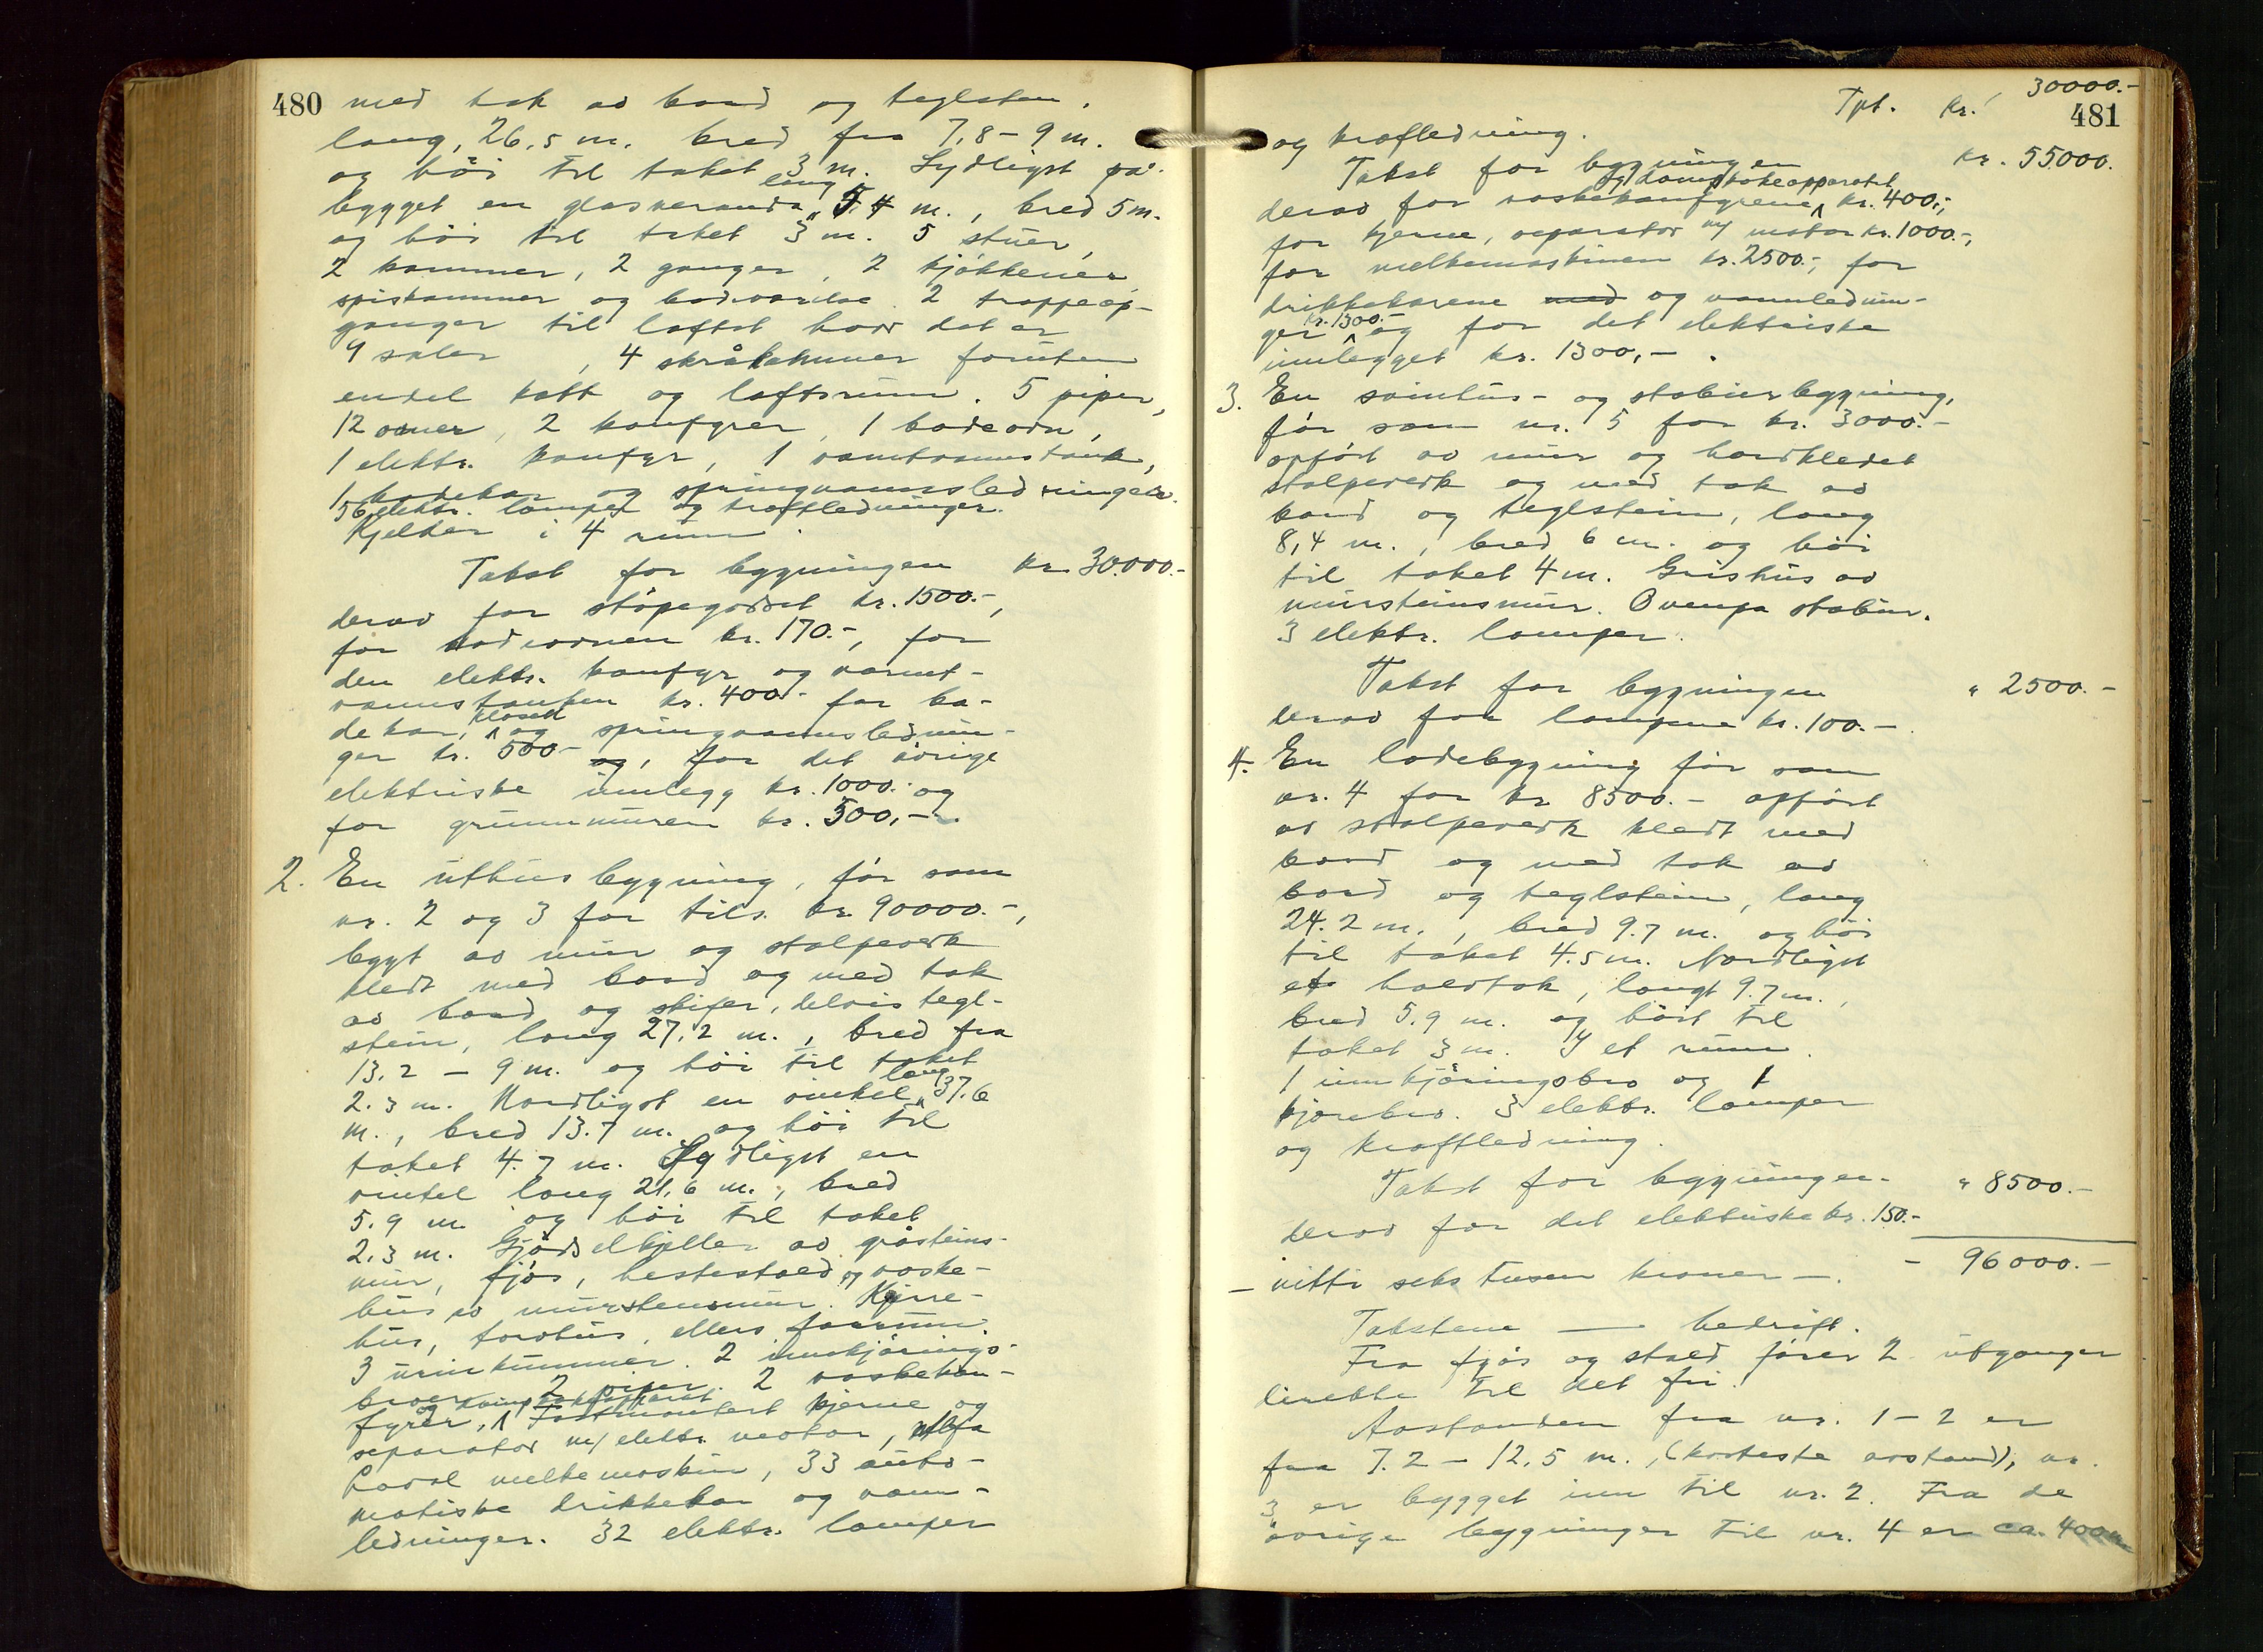 480
med tak av bord og teglsten,
lang, 26,5 m. bred fra 7,8 - 9 m.
og høi til taket 3 m. Sydligst på-
bygget en glasveranda, lang 5.4 m., bred 5 m.
og høi til taket 3 m. 5 stuer,
2 kammer, 2 ganger, 2 kjøkkener
spiskammer og badeværelse. 2 trappeop-
ganger til loftet hvor det er
9 saler, 4 skråkammer foruten
endel kott og loftsrum. 5 piper,
12 ovner, 2 komfyrer, 1 badeovn,
1 elektr. komfyr, 1 varmtvannstank,
1 badekar og springvannsledninger.
56 elektr. lamper og kraftledninger.
Kjelder i 4 rum.
Takst for bygningen kr. 30.000.-
derav for støpegodset kr. 1500.-,
for badeovnen kr. 170.-, for
den elektr. komfyr og varmt-
vannstanken kr. 400.- for ba-
dekar, klosett og springvannslednin-
ger kr. 500.- og, for det øvrige
elektriske innlegg kr. 1000.- og
for grunnmuren kr. 500,-.
2. En uthusbygning, før som
nr. 2 og 3 for tils. kr. 90000.-,
bygt av mur og stolpeverk
kledt med bord og med tak
av bord og skifer, delvis tegl-
stein, lang 27,2 m., bred fra
13.2 - 9 m. og høi til taket
2.3 m. Nordligst en vinkel, lang 37.6
m., bred 13.7 m. og høi til
taket 4.7 m. Sydligst en
vinkel lang 21,6 m., bred
5.9 m og høi til taket
2.3 m. Gjødselkjeller av gråsteins-
mur, fjøs, hestestald og vaske-
hus av murstensmur. Kjerre-
hus, torvhus, ellers forrum.
3 urinkummer. 2 innkjørings-
broer. 2 piper. 2 vaskekom-
fyrer, og dampkokeapparat fastmontert kjerne og
separator m/ elektr. motor, Alfa
Laval melkemaskin, 33 auto-
matiske drikkekar og vann-
ledninger. 32 elektr. lamper
481
Tpt. kr. 30000.-
og kraftledning.
Takst for bygningen kr. 55000.
derav for vaskekomfyrene og dampkokeapparatet kr. 400.-,
for kjerne, separator m/ motor kr. 1000.-,
for melkemaskinen kr. 2500.-, for
drikkekarene med og vannlednin-
ger kr. 1300.- og for det elektriske
innlegget kr. 1300,-.
3. En svinhus- og stabursbygning,
før som nr. 5 for kr. 3000.-
opført av mur og bordkledt
stolpeverk og med tak av
bord og teglstein, lang
8,4 m., bred 6 m. og høi
til taket 4 m. Grishus av
mursteinsmur. Ovenpa stabur.
3 elektr. lamper.
Takst for bygningen " 2500.-
derav for lampene kr. 100.-
4. En ladebygning før som
nr. 4 for kr 8500.- opført
av stolpeverk kledt med
bord og med tak av
bord og teglstein, lang
24.2 m., bred 9.7 m. og høi
til taket 4.5 m. Nordligst
et halvtak, langt 9.7 m.,
bred 5.9 m. og høit til
taket 3 m. I et rum.
1 innkjøringsbro og 1
kjørebro. 3 elektr. lamper
og kraftledning.
Takst for bygningen- " 8500.-
derav for det elektriske kr. 150.-
- nitti seks tusen kroner -. - 96000.-
Takstene — bedrift.
Fra fjøs og stald fører 2 utganger
direkte til det fri.
Avstanden fra nr. 1 - 2 er
fra 7.2 - 12,5 m., (korteste avstand), nr.
3 er bygget inn til nr. 2. Fra de
øvrige bygninger til nr. 4 er ca. 400 m